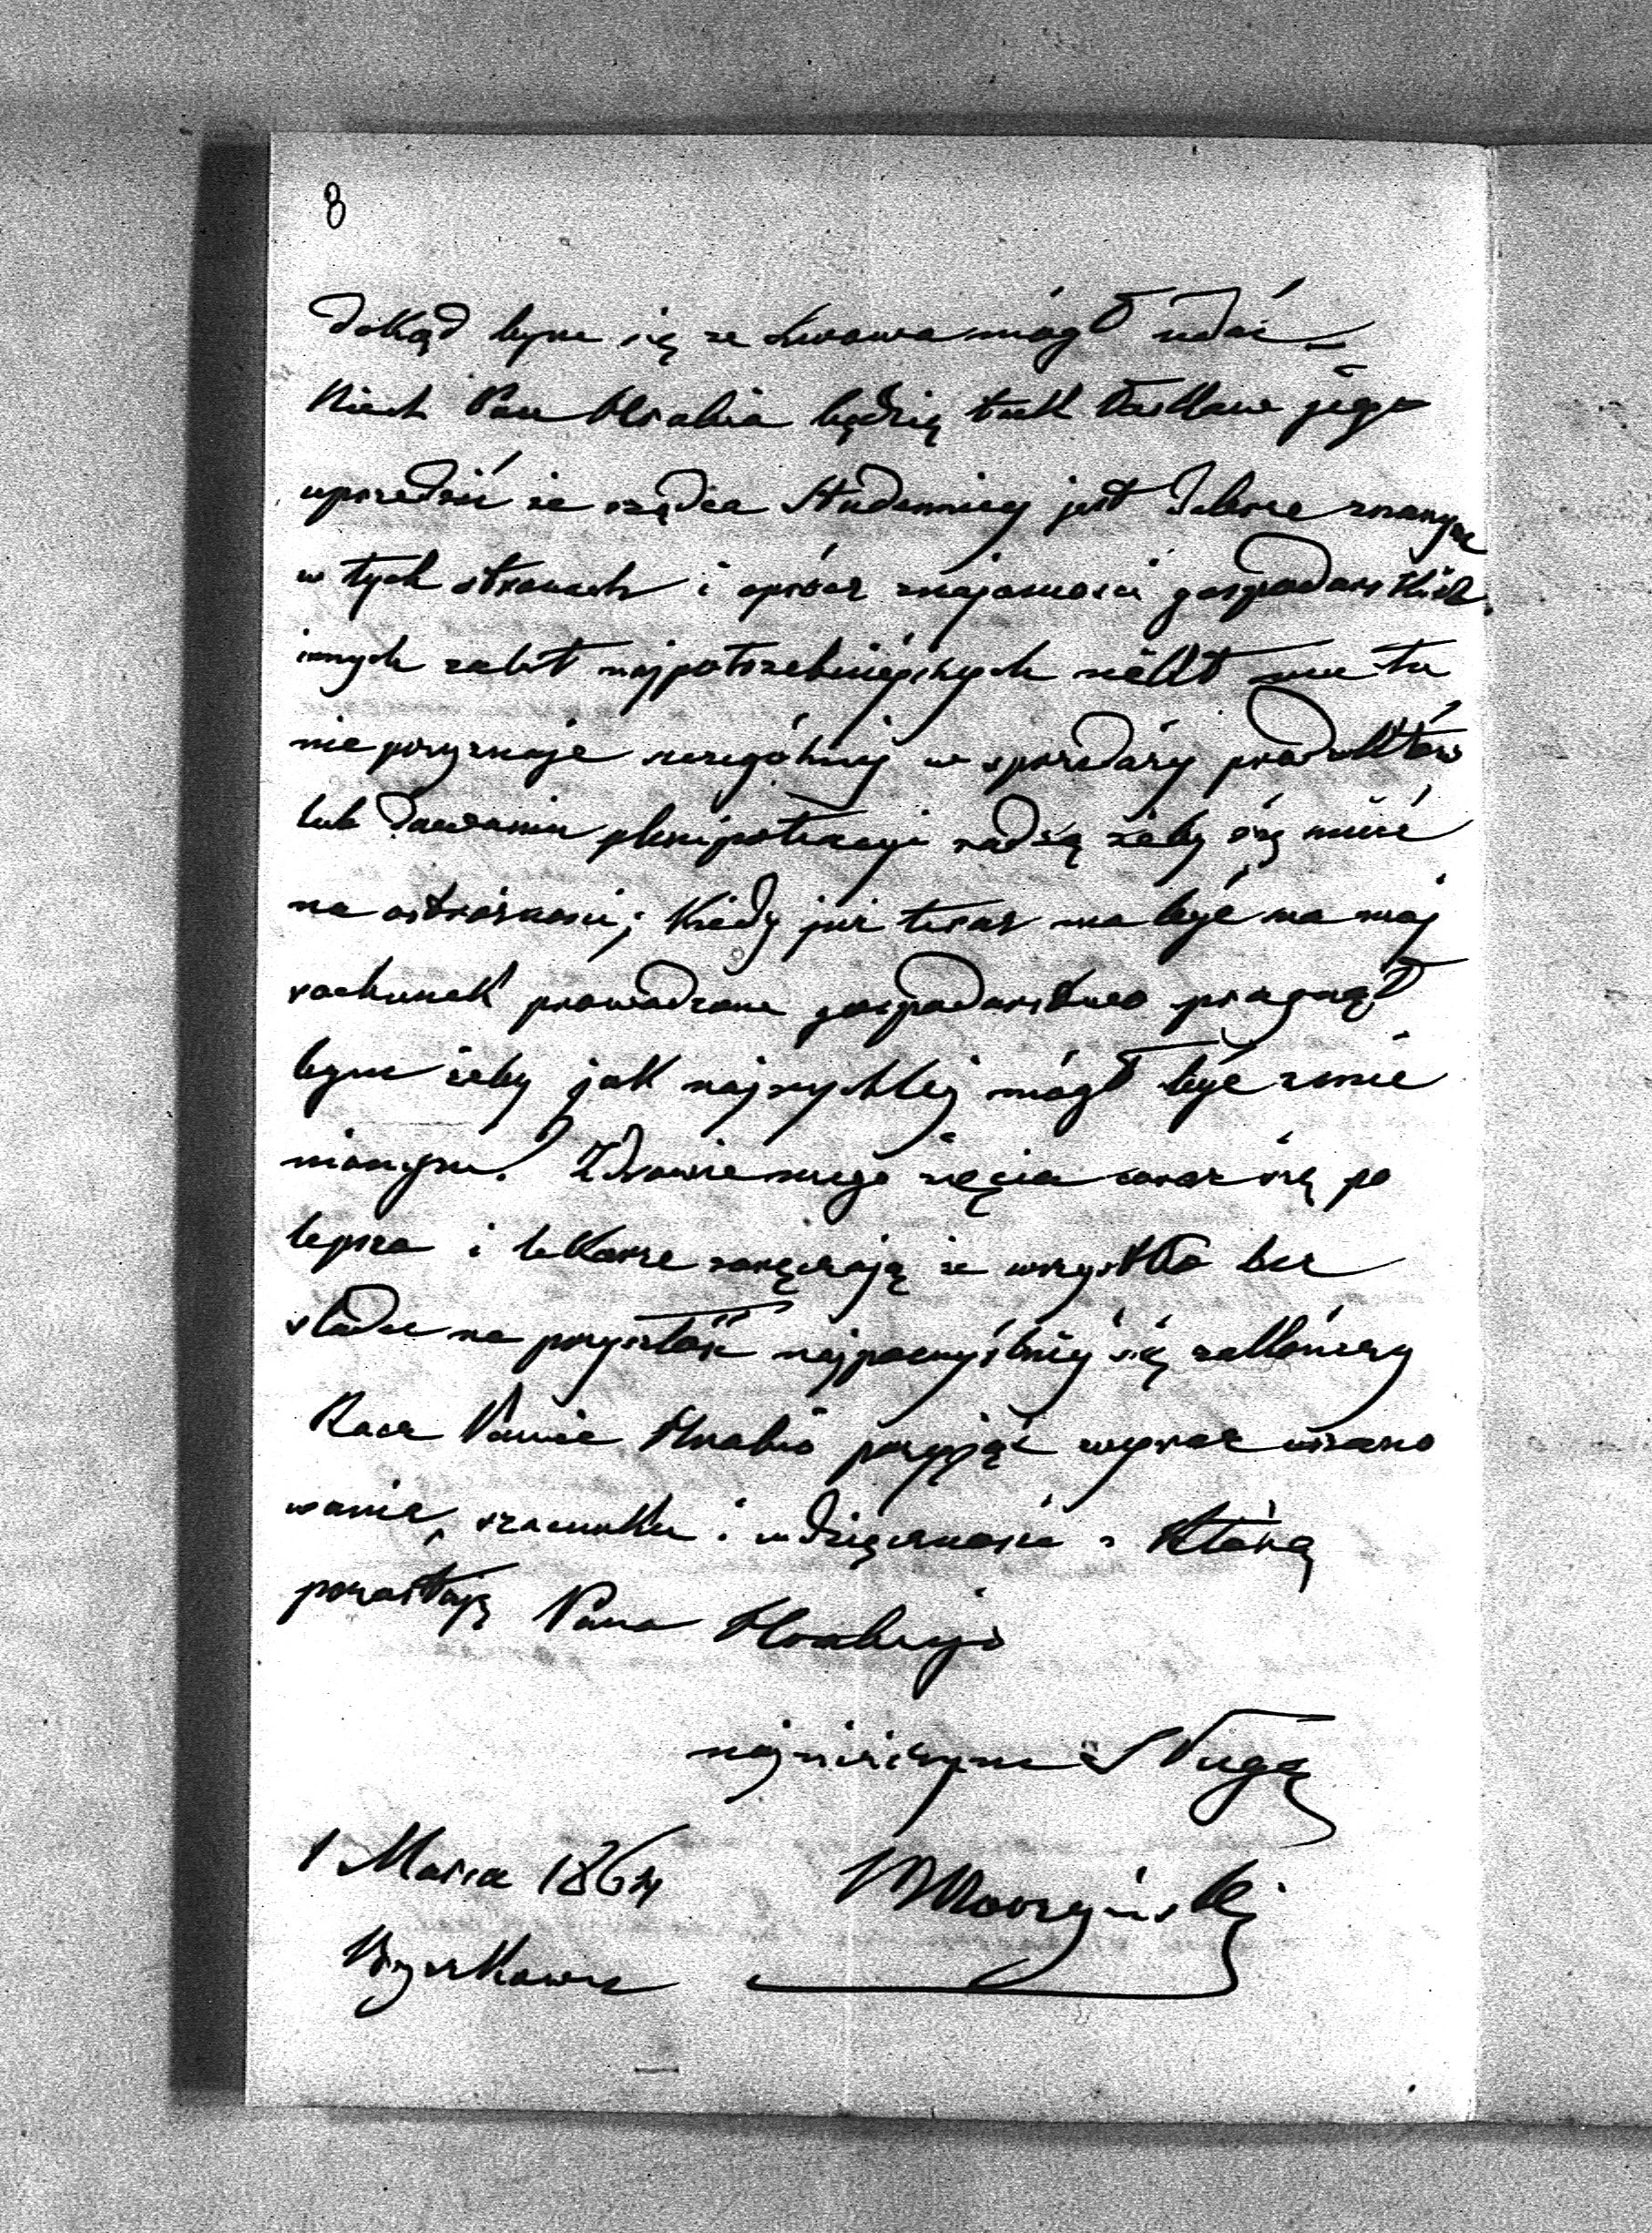 8
dokąd bym się ze Lwowa mógł udać
Niech Pan Hrabia będzię tak łaskaw jego
uprzedzić że rządca Studennicy jest dobrze znanym
w tych stronach i oprócz znajomości gospodarskich
innych zalet najpotrzebniejszych nikt mu tu
nie przyznaje szczególniej w sprzedaży produktów
lub dawaniu plenipotencyi radzą żeby się mieć
na ostrożności; Kiedy już teraz ma być na mój
rachunek prowadzone gospodarstwo pragnął
bym żeby jak najrychlej mógł być zmie
nionym. Zdrowie mego zięcia coraz się po
lepsza i lekarze zaręczają że wszystko bez
śladu na przyszłość najpomyślniej się zakończy
Racz Panie Hrabio przyjąć wyraz uszano
wania, szacunku i wdzięczności z którą
pozostaję Pana Hrabiego
najniższym Sługą
1 Marca 1864